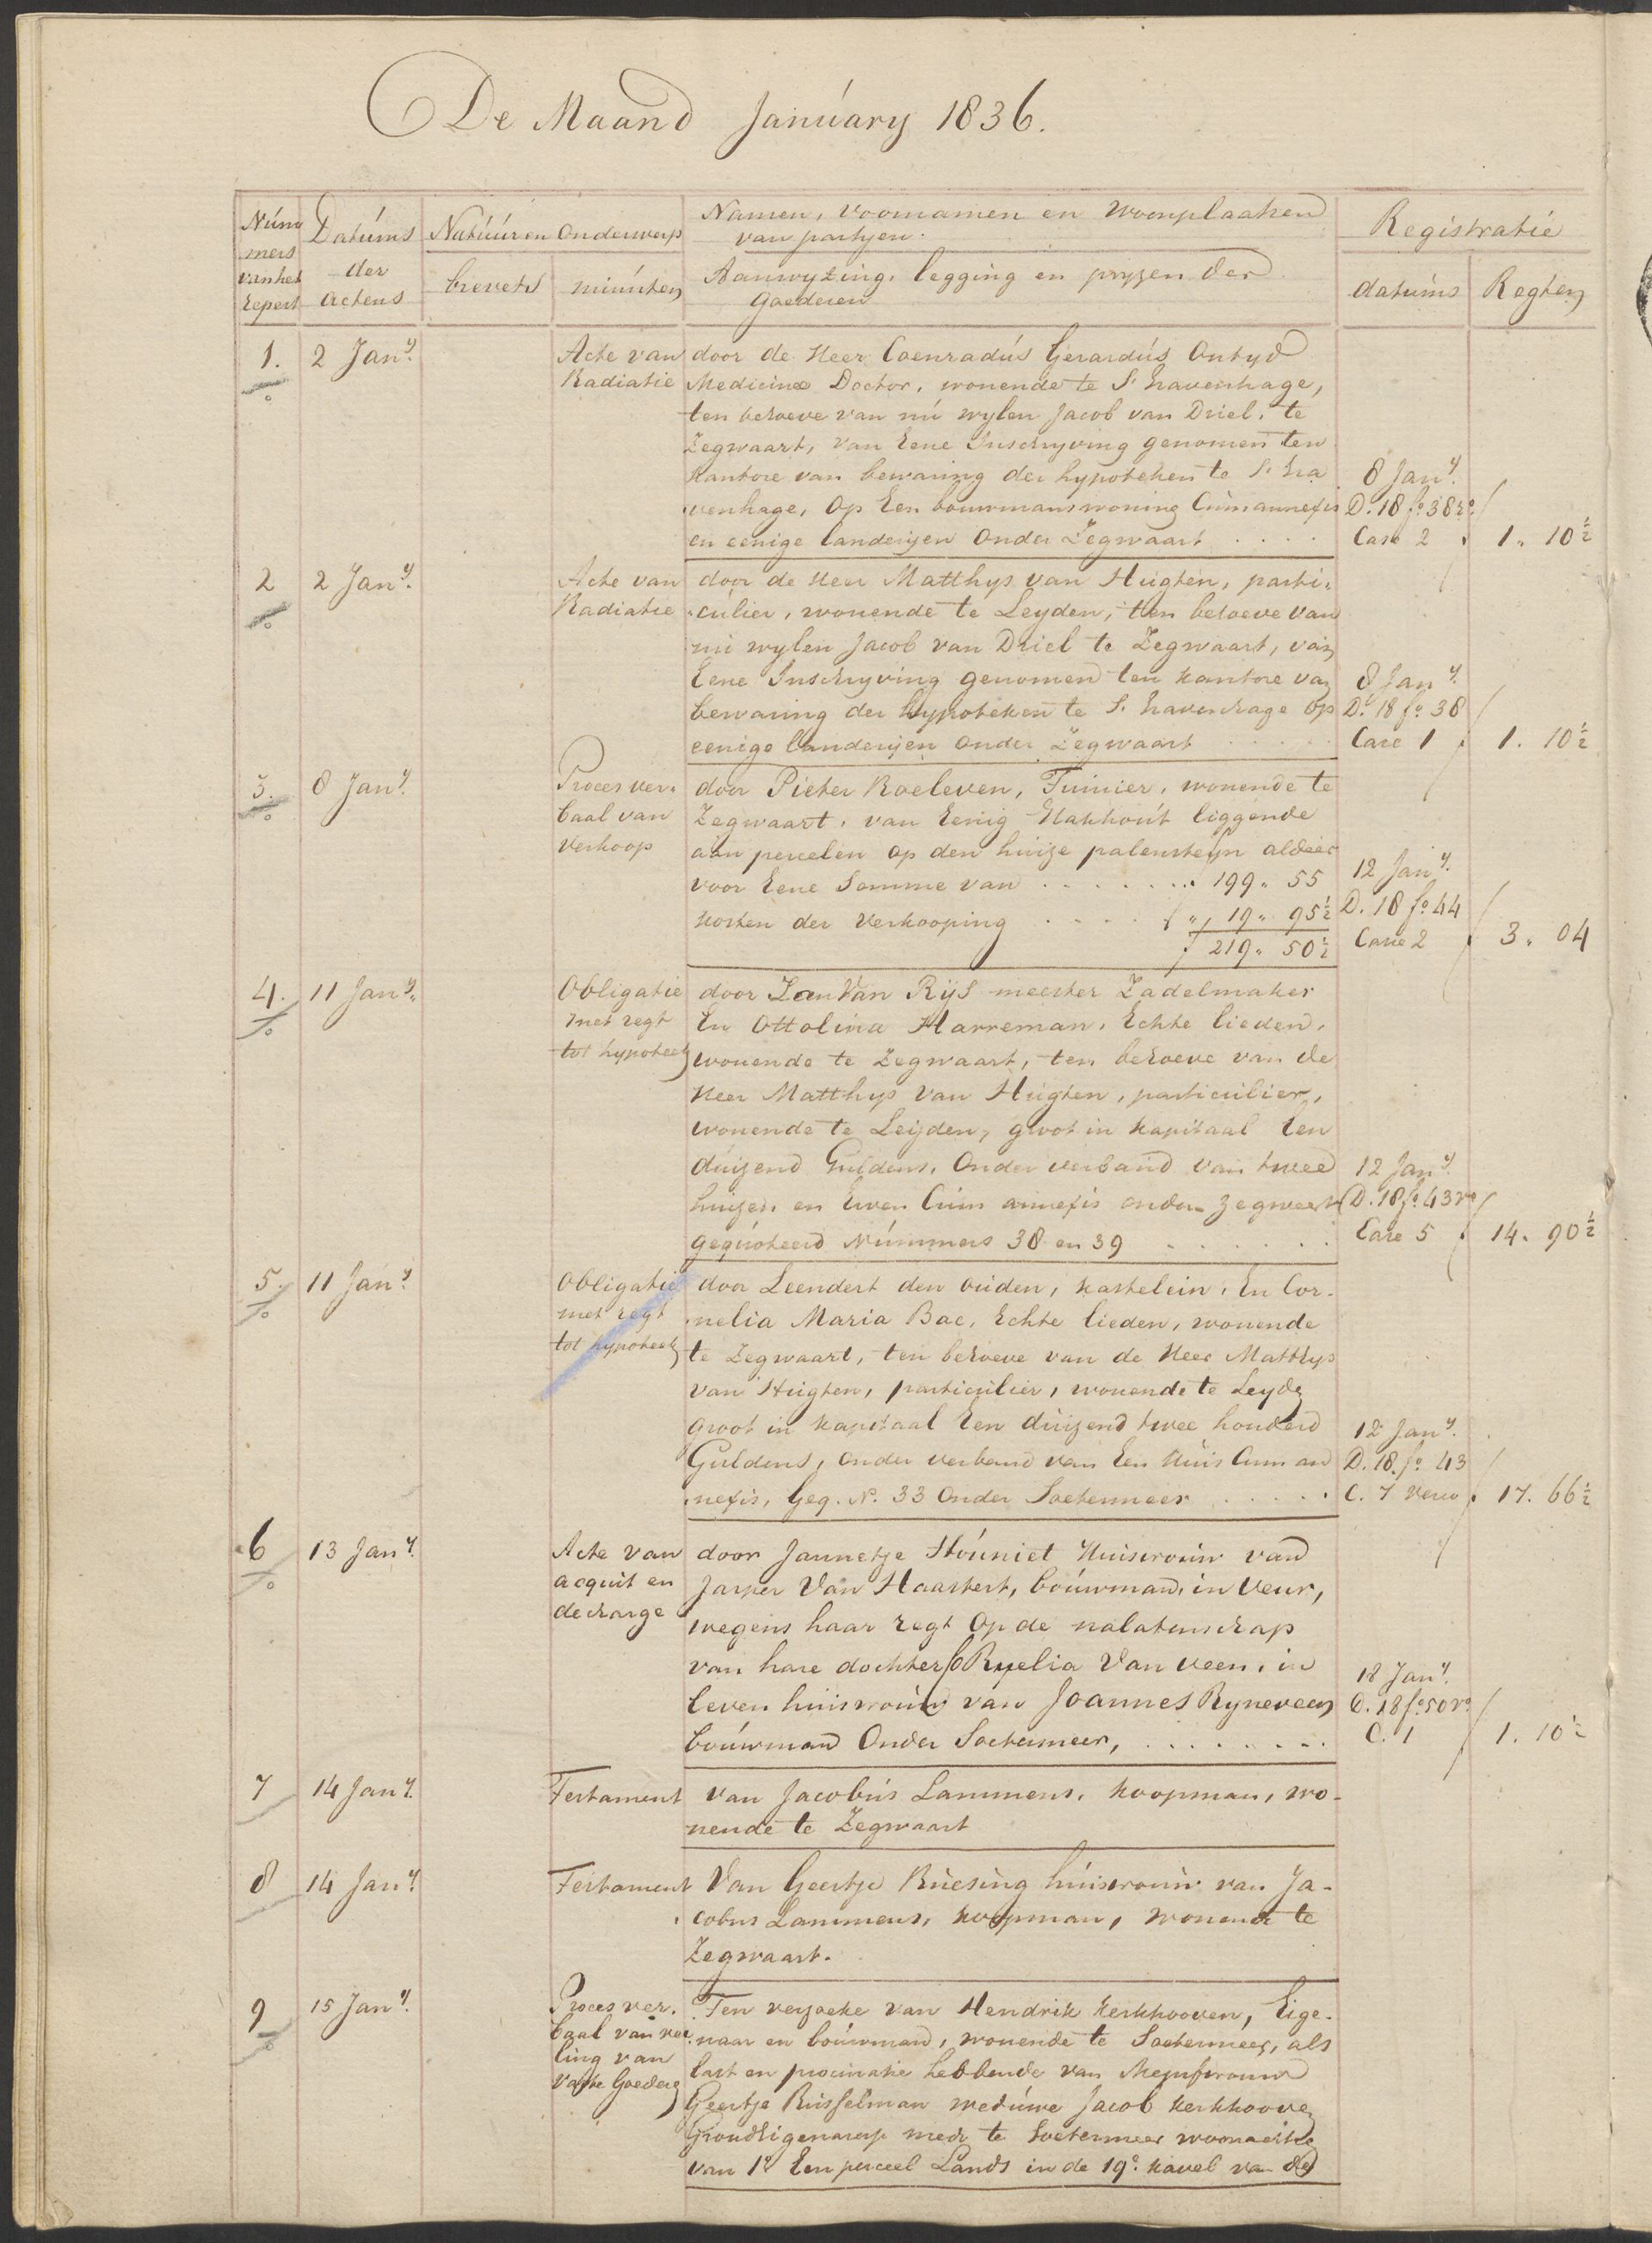 De Maand January 1836.
Num
mers
van het
Repert
Datums
der
Actens
Natuur en Onderwerp
brevets
minuten
Namen, Voornamen en Woonplaatsen
van partyen.
Aanwyzing, legging en pryzen der
Goederen
Registratie
datums
Regten
1. 2 Jany.
Acte van
Radiatie
door de Heer Coenradus Gerardus Ontyd
Medicinae Doctor, wonende te S' Gravenhage,
ten behoeve van nu wylen Jacob van Driel, te
Zegwaart, van Eene Inschryving genomen ten
Kantore van bewaring der hypoteken te S' Gra
venhage, Op Een bouwmanswoning Cum annexis
en eenige landeryen Onder Zegwaart . . . .
8 Jany.
D. 18 fo. 38 ro.
Case 2
1. 10½
2 2 Jany.
Acte van
Radiatie
door de Heer Matthys van Hugten, parti-
culier, wonende te Leyden, ten behoeve van
nu wylen Jacob van Driel te Zegwaart, van
Eene Inschryving genomen ten kantore van
bewaring der hypoteken te S. Gravenhage Op
eenige landeryen Onder Zegwaart . . . . .
8 Jany.
D. 18 fo. 38
Case 1
1. 10½
3. 8 Jany.
Proces ver-
baal van
Verkoop
door Pieter Roeleven, Tuinier, wonende te
Zegwaart, van Eenig Hakhout liggende
aan perceelen op den huize palensteyn aldaar
voor Eene Somme van . . . . . . . 199. 55
kosten der Verkooping . . . . ƒ „ 19. 95½
ƒ 219. 50½
12 Jany.
D. 18 fo. 44
Case 2
3. 04
4. 11 Jany.
Obligatie
met regt
tot hypoteek
door Jan Van Rijs meester Zadelmaker
En Ottolina Harreman, Echte lieden,
wonende te Zegwaart, ten behoeve van de
Heer Matthys Van Hugten, particulier,
wonende te Leijden, groot in kapitaal Een
duizend Guldens, Onder verband van twee
huizen en Erven Cum annexis onder Zegwaart
gequoteerd Nummers 38 en 39 . . . . . .
12 Jany.
D. 18 fo. 43 vo
Case 5
14. 90½
5. 11 Jany.
Obligatie
met regt
tot hypoteek
door Leendert den ouden, kastelein, En Cor-
nelia Maria Bac, Echte lieden, wonende
te Zegwaart, ten behoeve van de Heer Matthys
van Hugten, particulier, wonende te Leyden
groot in kapitaal Een duizend twee honderd
Guldens, onder verband van Een Huis Cum an
nexis, Geq. No. 33 Onder Soetermeer . . . . .
12 Jany.
D. 18. fo. 43
C. 7 Verso
17. 66½
6 13 Jany.
Acte van
acquit en
decharge
door Jannetje Houniet Huisvrouw van
Jasper Van Haastert, bouwman, in Veur,
wegens haar regt Op de nalatenschap
van hare dochter Cornelia Van Veen, in
leven huisvrouw van Joannes Ryneveen
bouwman Onder Soetermeer, . . . . . . .
18 Jany.
D. 18 fo. 50 ro.
C. 1
1. 10½
7 14 Jany.
Testament
van Jacobus Lammens, koopman, wo-
nende te Zegwaart
8 14 Jany.
Testament
Van Geertje Ruesing huisvrouw van Ja-
cobus Lammens, koopman, wonende te
Zegwaart.
9 15 Jany.
Proces ver.
baal van vei
ling van
Vaste Goederen
Ten verzoeke van Hendrik Kerkhooven, Eige-
naar en bouwman, wonende te Soetermeer, als
last en procuratie hebbende van Mejufvrouw
Geertje Busselman weduwe Jacob Kerkhoove
Grondeigenaresse mede te Soetermeer woonachtig
van 1o. Een perceel Lands in de 19e. kavel van de